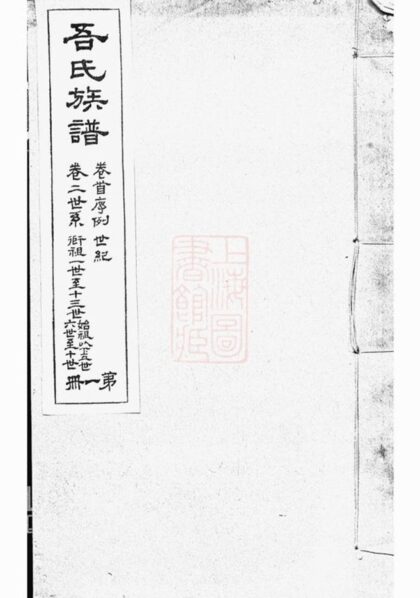 吾氏族譜
卷首序例 世紀
卷二世系 衍祖一世至十三世
始祖以下五世
六世至十世
第一冊
上海圖書館藏